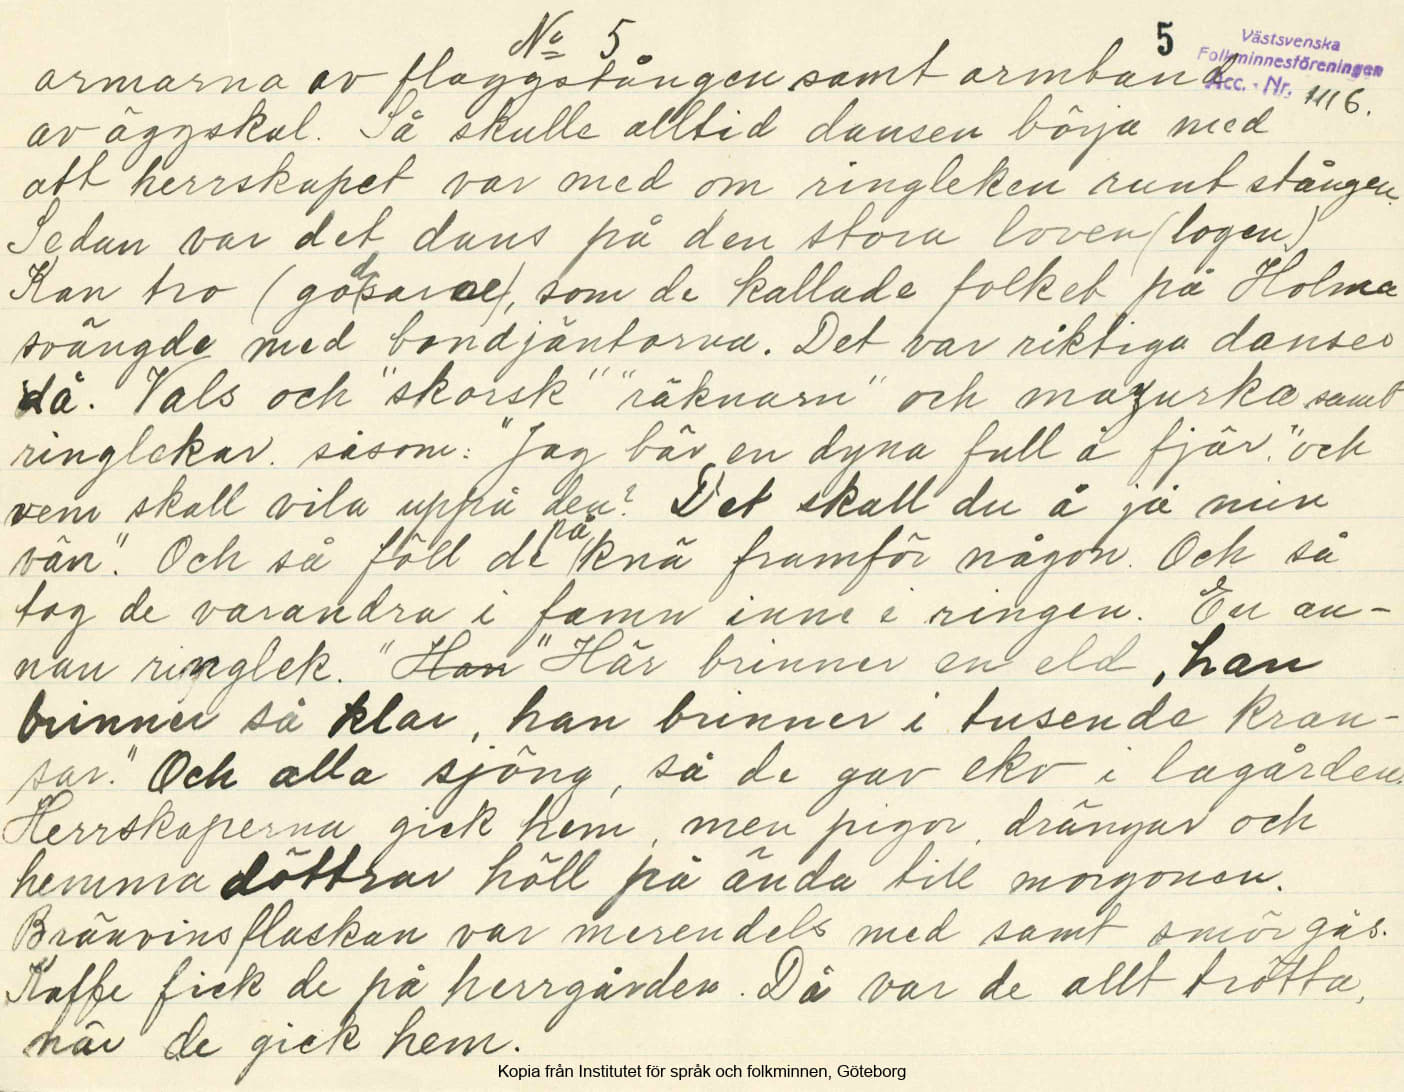 No 5
5
Västsvenska
Folkminnesföreningen
Acc. - Nr. 1116.
armarna av flaggstången samt armband
av äggskal. Så skulle alltid dansen börja med
att herrskapet var med om ringleken runt stången.
Sedan var det dans på den stora loven (logen)
Kan tro som de kallade folket på Holma
svängde med bondjäntorna. Det var riktiga danser
då. Vals och "skorsk" "räknarn" och mazurka samt
ringlekar. såsom: "Jag bär en dyna full å fjär," och
vem skall vila uppå den? Det skall du å jä min
vän". Och så föll de på knä framför någon. Och så
tog de varandra i famn inne i ringen. En an-
nan ringlek. "Han "Här brinner en eld, han
brinner så klar, han brinner i tusende kran-
sar." Och alla sjöng, så de gav eko i lagården.
Herrskaperna gick hem, men pigor, drängar och
hemma döttrar höll på ända till morgonen.
Bränvinsflaskan var merendels med samt smörgås.
Kaffe fick de på herrgården. Då var de allt trötta,
när de gick hem.
Kopia från Institutet för språk och folkminnen, Göteborg